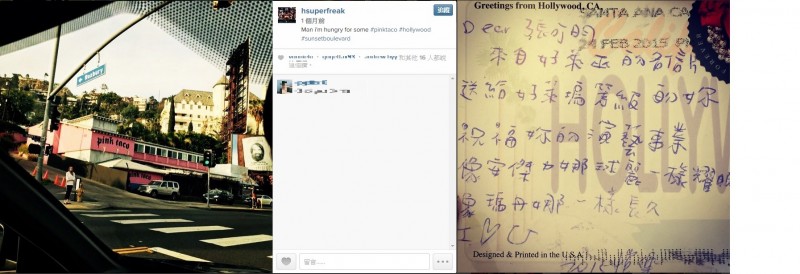 Roxbury
pink taco
hsuperfreak
1 個月前
Man i'm hungry for some #pinktaco #hollywood
#sunsetboulevard
追蹤
留言......
Greetings from Hollywood, CA.
SANTA ANA CA
24 FEB 2015 P
Dear 張
來自好萊塢的名信片
送給好萊塢等級的妳
祝福妳的演藝事業
像安傑力娜球麗一樣耀眼
像瑪丹娜一樣長久
I ♡ U
HOLLYW
Designed & Printed in the U.S.A